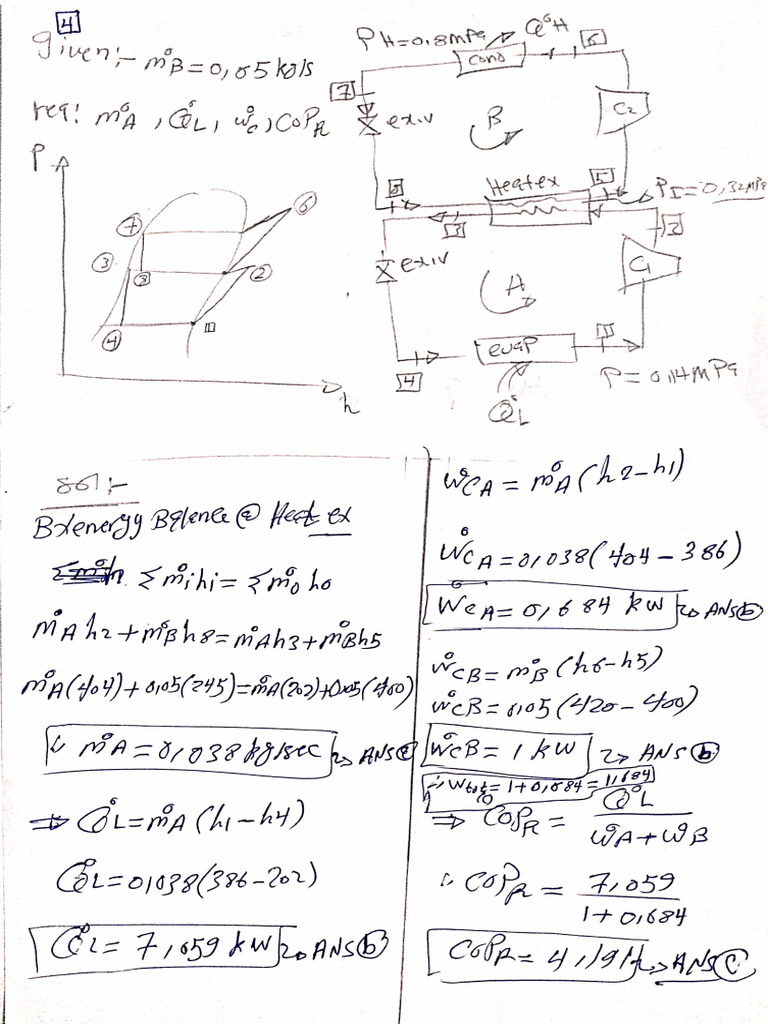 4
given:- ṁB = 0,05 kg/s
req: ṁA, Q̇L, ẇc, COPR
PH = 0.8 MPa
Q̇H
cond
6
7
ex.v
B
C2
8
Heat ex
5
PI = 0,32 MPa
3
2
ex.v
A
C1
4
evap
1
P = 0,14 MPa
Q̇L
P
7
6
3
8
2
4
1
h
sol:-
By energy Balance @ Heat ex
Σṁihi = Σṁoho
ṁAh2 + ṁBh8 = ṁAh3 + ṁBh5
ṁA(404) + 0,05(245) = ṁA(202) + 0,05(400)
∴ ṁA = 0,038 kg/sec → ANS a
⇒ Q̇L = ṁA(h1 – h4)
Q̇L = 0,038(386 – 202)
Q̇L = 7,059 kW → ANS b
ẇCA = ṁA(h2 – h1)
ẇCA = 0,038(404 – 386)
ẇCA = 0,684 kW → ANS b
ẇCB = ṁB(h6 – h5)
ẇCB = 0,05(420 – 400)
ẇCB = 1 kW → ANS b
∴ Wtot = 1 + 0,684 = 1,684
⇒ COPR = Q̇L / ẇA + ẇB
∴ COPR = 7,059 / 1 + 0,684
COPR = 4,191 → ANS c